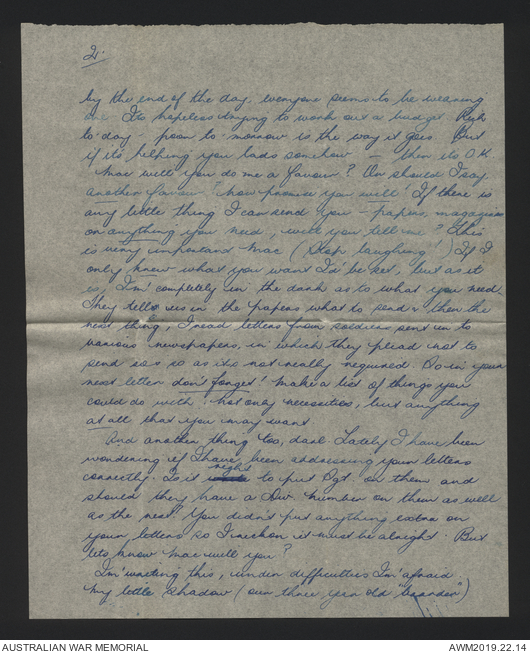 2.
by the end of the day, everyone seems to be wearing
one. Its hopeless trying to work out a budget Rich
to-day - poor to-morrow is the way it goes But
if it's helping you lads somehow - then its O.K.
Mac will you do me a favour? Or should I say
another favour? Now promise you will! If there is
any little thing I can send you - papers, magazines
or anything you need, will you tell me? This
is very important Mac (Stop laughing!) If I
only knew what you want I'd be set, but as it
is, I'm completely in the dark as to what you need.
They tell us in the papers what to send & then the
next thing, I read letters from soldiers sent in to
various newspapers, in which they plead not to
send so & so as its not really required. So in your
next letter don't forget! Make a list of things you
could do with; not only necessities, but anything
at all that you may want.
And another thing too, darl Lately I have been
wondering if I have been addressing your letters
correctly. Is it right to put Sgt. on them and
should they have a Div. number on them as well
as the rest? You didn't put anything extra on
your letters so I reckon it must be alright. But
lets know Mac will you?
I'm writing this, under difficulties I'm afraid.
My little shadow (our three year old "boarder")
AUSTRALIAN WAR MEMORIAL
AWM2019.22.14